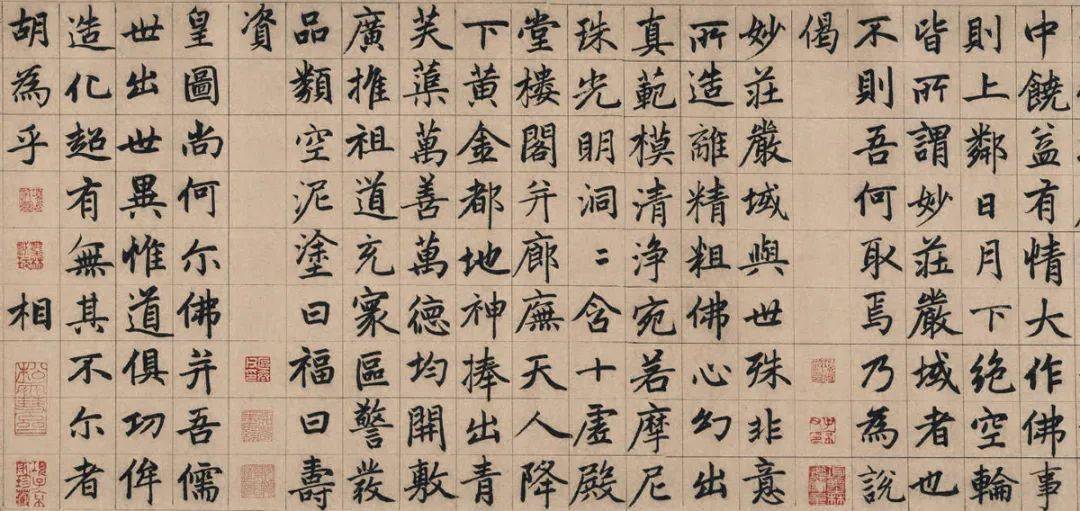 中饒益有情大作佛事
則上鄰日月下絶空輪
皆所謂妙莊嚴域者也
不則吾何取焉乃為説
偈
妙莊嚴域與世殊非意
所造離精粗佛心幻出
真範模清浄宛若摩尼
珠光明洞〻含十虛殿
堂樓閣并廊廡天人降
下黃金都地神捧出青
芙蕖萬善萬德均開敷
廣推祖道充寰區警發
品類空泥塗曰福曰壽
資
皇圖尚何尓佛并吾儒
世出世異惟道俱功侔
造化超有無其不尓者
胡為乎 相